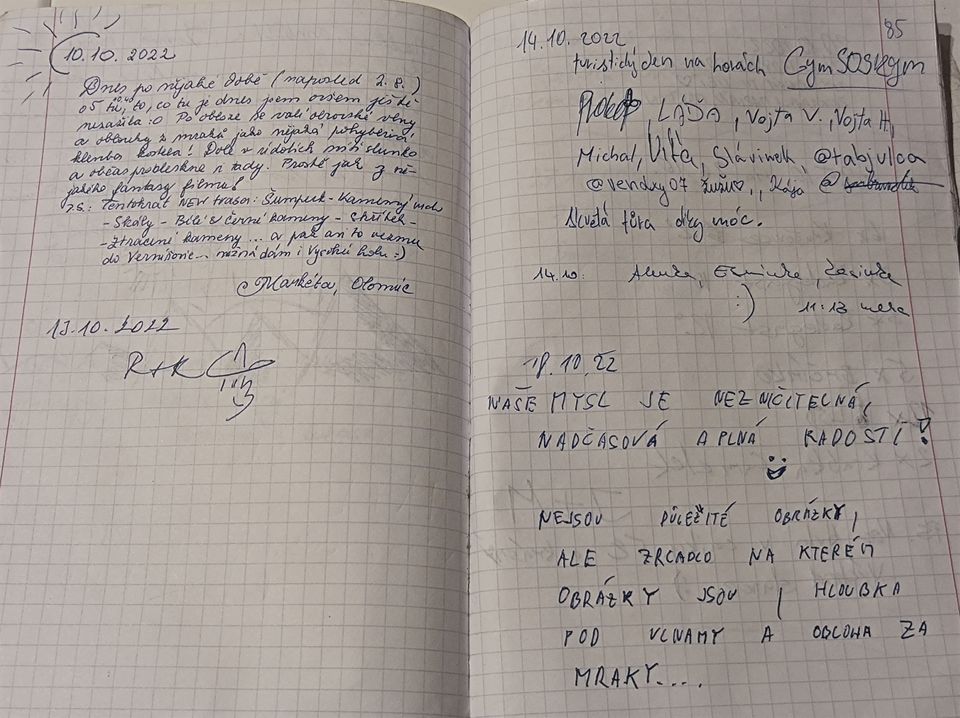 10.10.2022
Dnes po nějaké době (naposled 2.8.)
o 5 tu, to, co tu je dnes jsem ovšem ještě ne
nezažila :O Po obloze se valí obrovské vlny
a oblouky z mraků jako nějaká pohyblivá
klenba kostela! Dole v údolích svítí slunko
a občas probleskne i tady. Prostě jak z ně-
jakého fantasy filmu!
P.S.: Tentokrát NEW trasa: Šumperk - Kamenný vrch
- Skály - Bílé & černé kameny -
- Ztracené kameny ... a pak ani to vezmu
do Vernířovic... možná dám i Vysokou holi :)
Markéta, Olomouc
13.10.2022
R+K
14.10.2022
85
turistický den na horách GymSOSRym
LÁĎA, Vojta V., Vojta H,
Michal, Víťa, Slávinek, @tabjulca
@vendxy07 žužu♡, Kája @
Skvělá túra díky móc.
14.10.
:) 11:13
18.10.22
NAŠE MYSL JE NEZNIČITELNÁ,
NADČASOVÁ A PLNÁ RADOSTÍ!
NEJSOU DŮLEŽITÉ OBRÁZKY,
ALE ZRCADLO NA KTERÉM
OBRÁZKY JSOU, HLOUBKA
POD VLNAMY A OBLOHA ZA
MRAKY....